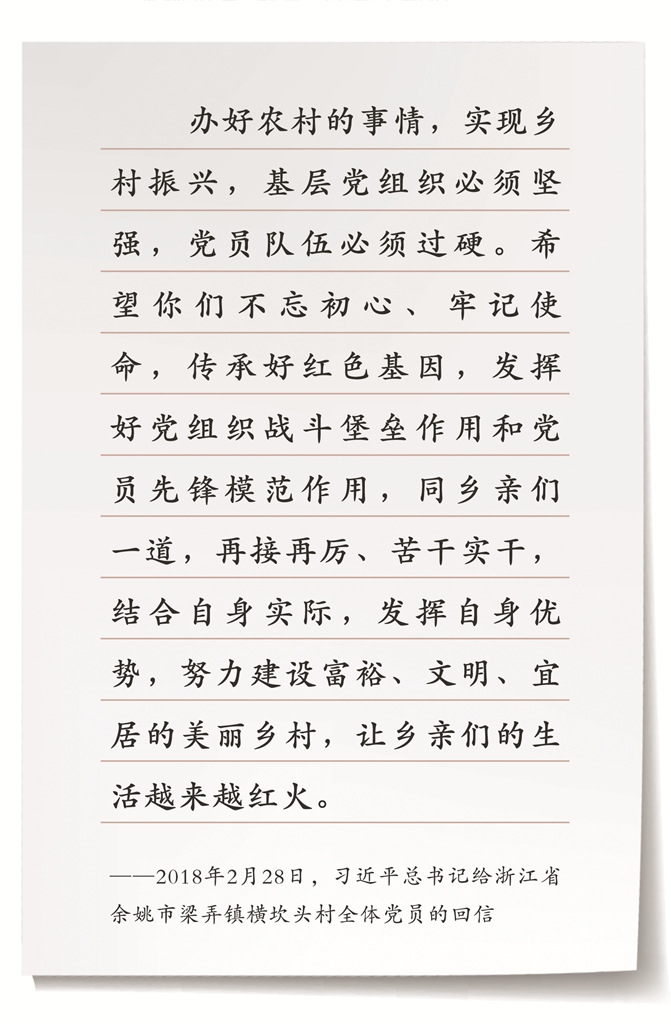 办好农村的事情，实现乡
村振兴，基层党组织必须坚
强，党员队伍必须过硬。希
望你们不忘初心、牢记使
命，传承好红色基因，发挥
好党组织战斗堡垒作用和党
员先锋模范作用，同乡亲们
一道，再接再厉、苦干实干，
结合自身实际，发挥自身优
势，努力建设富裕、文明、宜
居的美丽乡村，让乡亲们的生
活越来越红火。
——2018年2月28日，习近平总书记给浙江省
余姚市梁弄镇横坎头村全体党员的回信